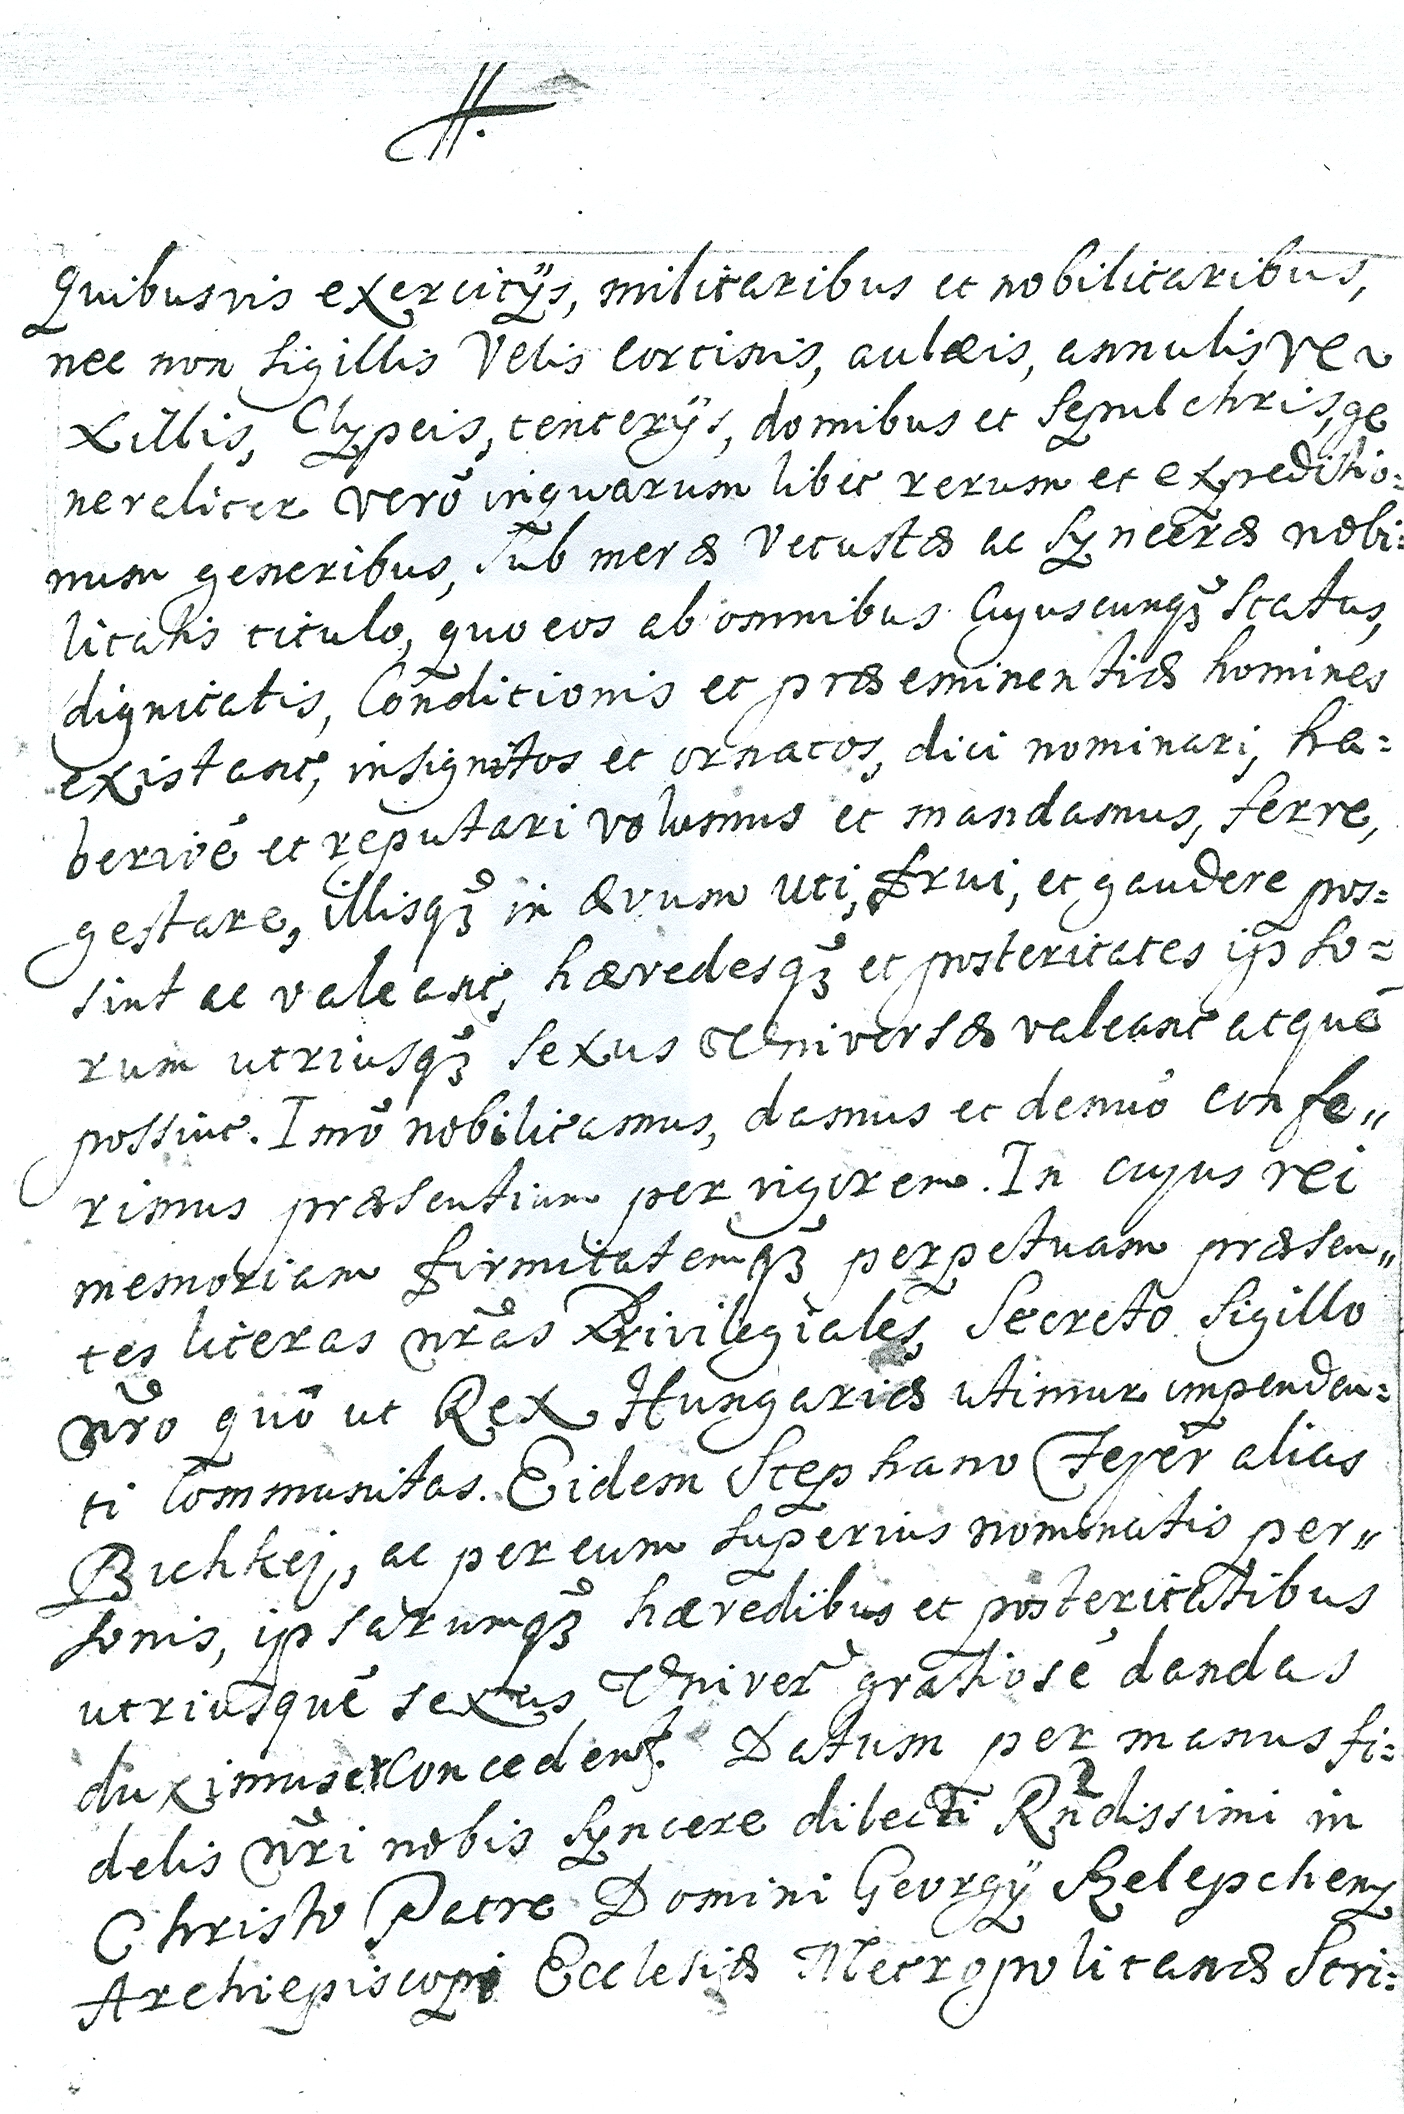 quibusvis exercitÿs, militaribus et nobilitaribus,
nec non sigillis Velis Cortinis, aulæis, annulis ve
xillis, Clypeis, tentorÿs, domibus et Sepulchris, ge
neraliter verò inquarum libet rerum et expeditio=
num generibus, sub meræ Vetustæ ac Synceræ nobi=
litatis titulo, quo eos ab omnibus Cujuscunqȝ Status,
dignitatis, Conditionis et præeminentiæ homines
existant, insignitos et ornatos, dici nominari, ha=
beriqé et reputari volumus et mandamus, ferre,
gestare, illisqȝ in ævum uti, frui, et gaudere pos=
sint ac valeant, hæredesqȝ et posteritates ipso=
rum utriusqȝ sexus Universæ valeant atqué
possint. Imò nobilitamus, damus et denuò confe„
rimus præsentium per vigorem. In cujus rei
memoriam firmitatemqȝ perpetuam præsen„
tes literas nr̃as Privilegiales, Secreto Sigillo
nr̃o quò ut Rex Hungariæ utimur impenden=
ti Communitas. Eidem Stephano Fejér alias
Bichkej, ac per eum superius nominatis per„
sonis, ipsarumqȝ hæredibus et posteritatibus
utriusqué sexus Univer̃ gratiosé dandas
duximus et Concedend. Datum per manus fi=
delis nr̃i nobis Syncere dilecti Rndissimi in
Christo Patre Domini Georgÿ Szelepcheny
Archiepiscopi Ecclesiæ Metropolitanæ Stri=